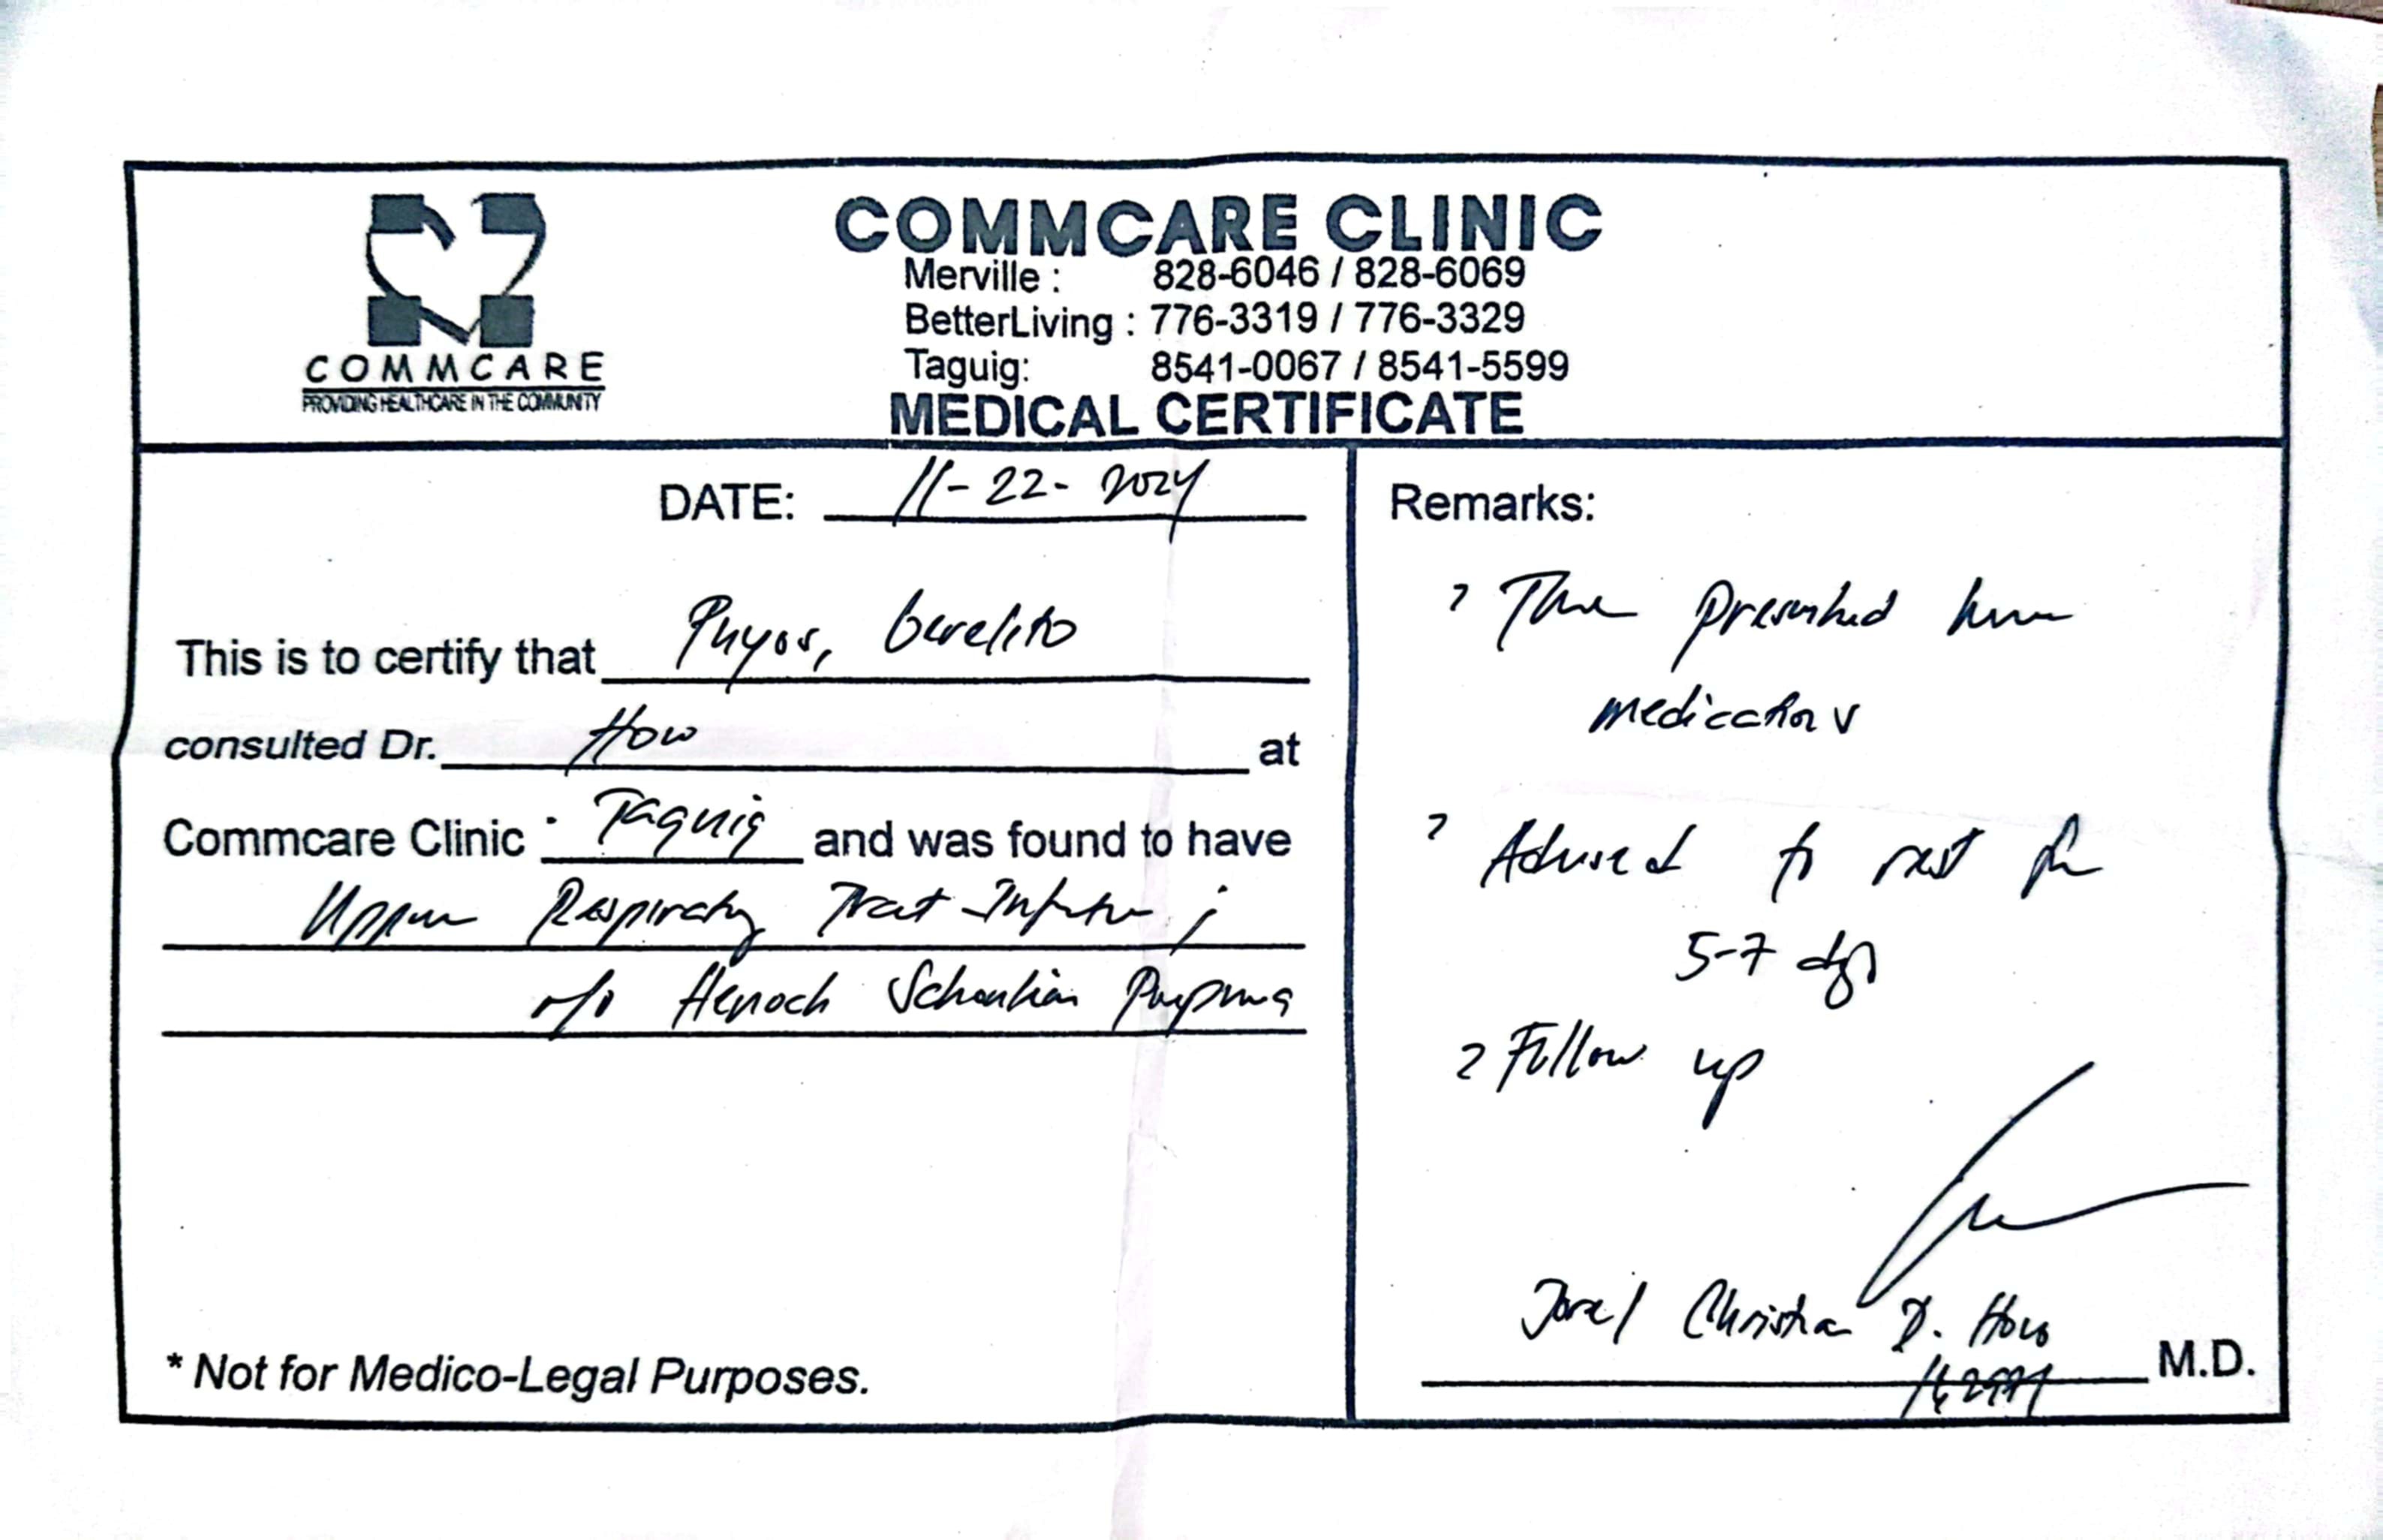 COMMCARE
PROVIDING HEALTHCARE IN THE COMMUNITY
COMMCARE CLINIC
Merville : 828-6046 / 828-6069
BetterLiving : 776-3319 / 776-3329
Taguig: 8541-0067 / 8541-5599
MEDICAL CERTIFICATE
DATE: 11-22-2024
This is to certify that Puyos,
consulted Dr. How at
Commcare Clinic : Taguig and was found to have
Upper Respiratory Tract Infection ;
r/o Henoch Schonlein Purpura
* Not for Medico-Legal Purposes.
Remarks:
prescribed home
medications
Advised to rest for
5-7 days
Follow up
Christian D. How
M.D.